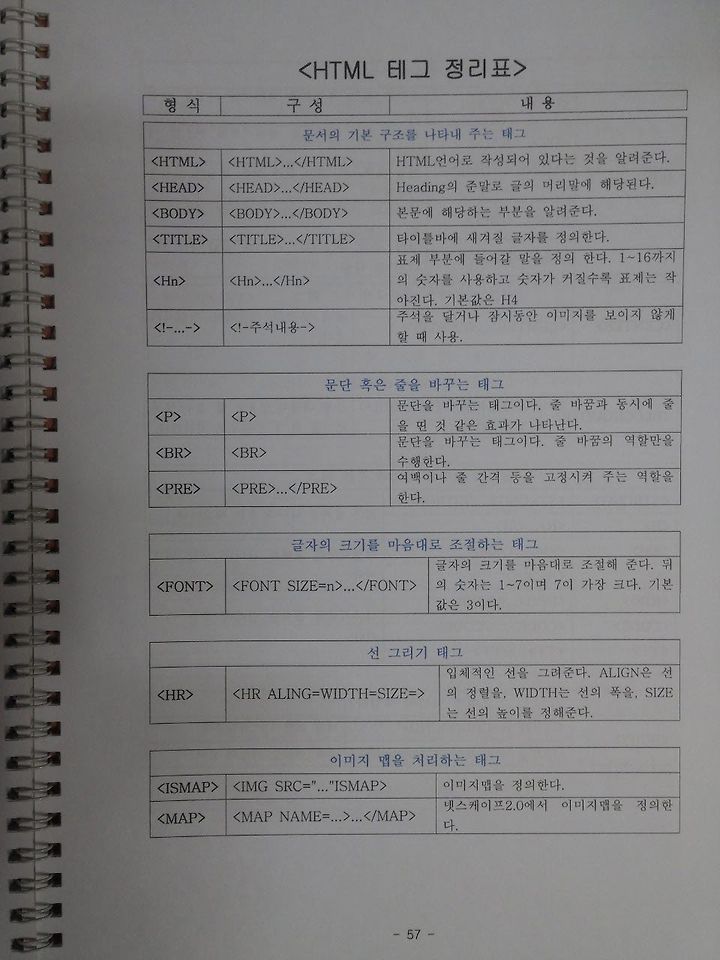 <HTML 테그 정리표>
형 식 구 성 내 용
문서의 기본 구조를 나타내 주는 태그
<HTML> <HTML>...</HTML> HTML언어로 작성되어 있다는 것을 알려준다.
<HEAD> <HEAD>...</HEAD> Heading의 준말로 글의 머리말에 해당된다.
<BODY> <BODY>...</BODY> 본문에 해당하는 부분을 알려준다.
<TITLE> <TITLE>...</TITLE> 타이틀바에 새겨질 글자를 정의한다.
<Hn> <Hn>...</Hn> 표제 부분에 들어갈 말을 정의 한다. 1~16까지
의 숫자를 사용하고 숫자가 커질수록 표제는 작
아진다. 기본값은 H4
<!-...-> <!-주석내용-> 주석을 달거나 잠시동안 이미지를 보이지 않게
할 때 사용.
문단 혹은 줄을 바꾸는 태그
<P> <P> 문단을 바꾸는 태그이다. 줄 바꿈과 동시에 줄
을 띤 것 같은 효과가 나타난다.
<BR> <BR> 문단을 바꾸는 태그이다. 줄 바꿈의 역할만을
수행한다.
<PRE> <PRE>...</PRE> 여백이나 줄 간격 등을 고정시켜 주는 역할을
한다.
글자의 크기를 마음대로 조절하는 태그
<FONT> <FONT SIZE=n>...</FONT> 글자의 크기를 마음대로 조절해 준다. 뒤
의 숫자는 1~7이며 7이 가장 크다. 기본
값은 3이다.
선 그리기 태그
<HR> <HR ALING=WIDTH=SIZE=> 입체적인 선을 그려준다. ALIGN은 선
의 정렬을, WIDTH는 선의 폭을, SIZE
는 선의 높이를 정해준다.
이미지 맵을 처리하는 태그
<ISMAP> <IMG SRC="..."ISMAP> 이미지맵을 정의한다.
<MAP> <MAP NAME=...>...</MAP> 넷스케이프2.0에서 이미지맵을 정의한
다.
- 57 -